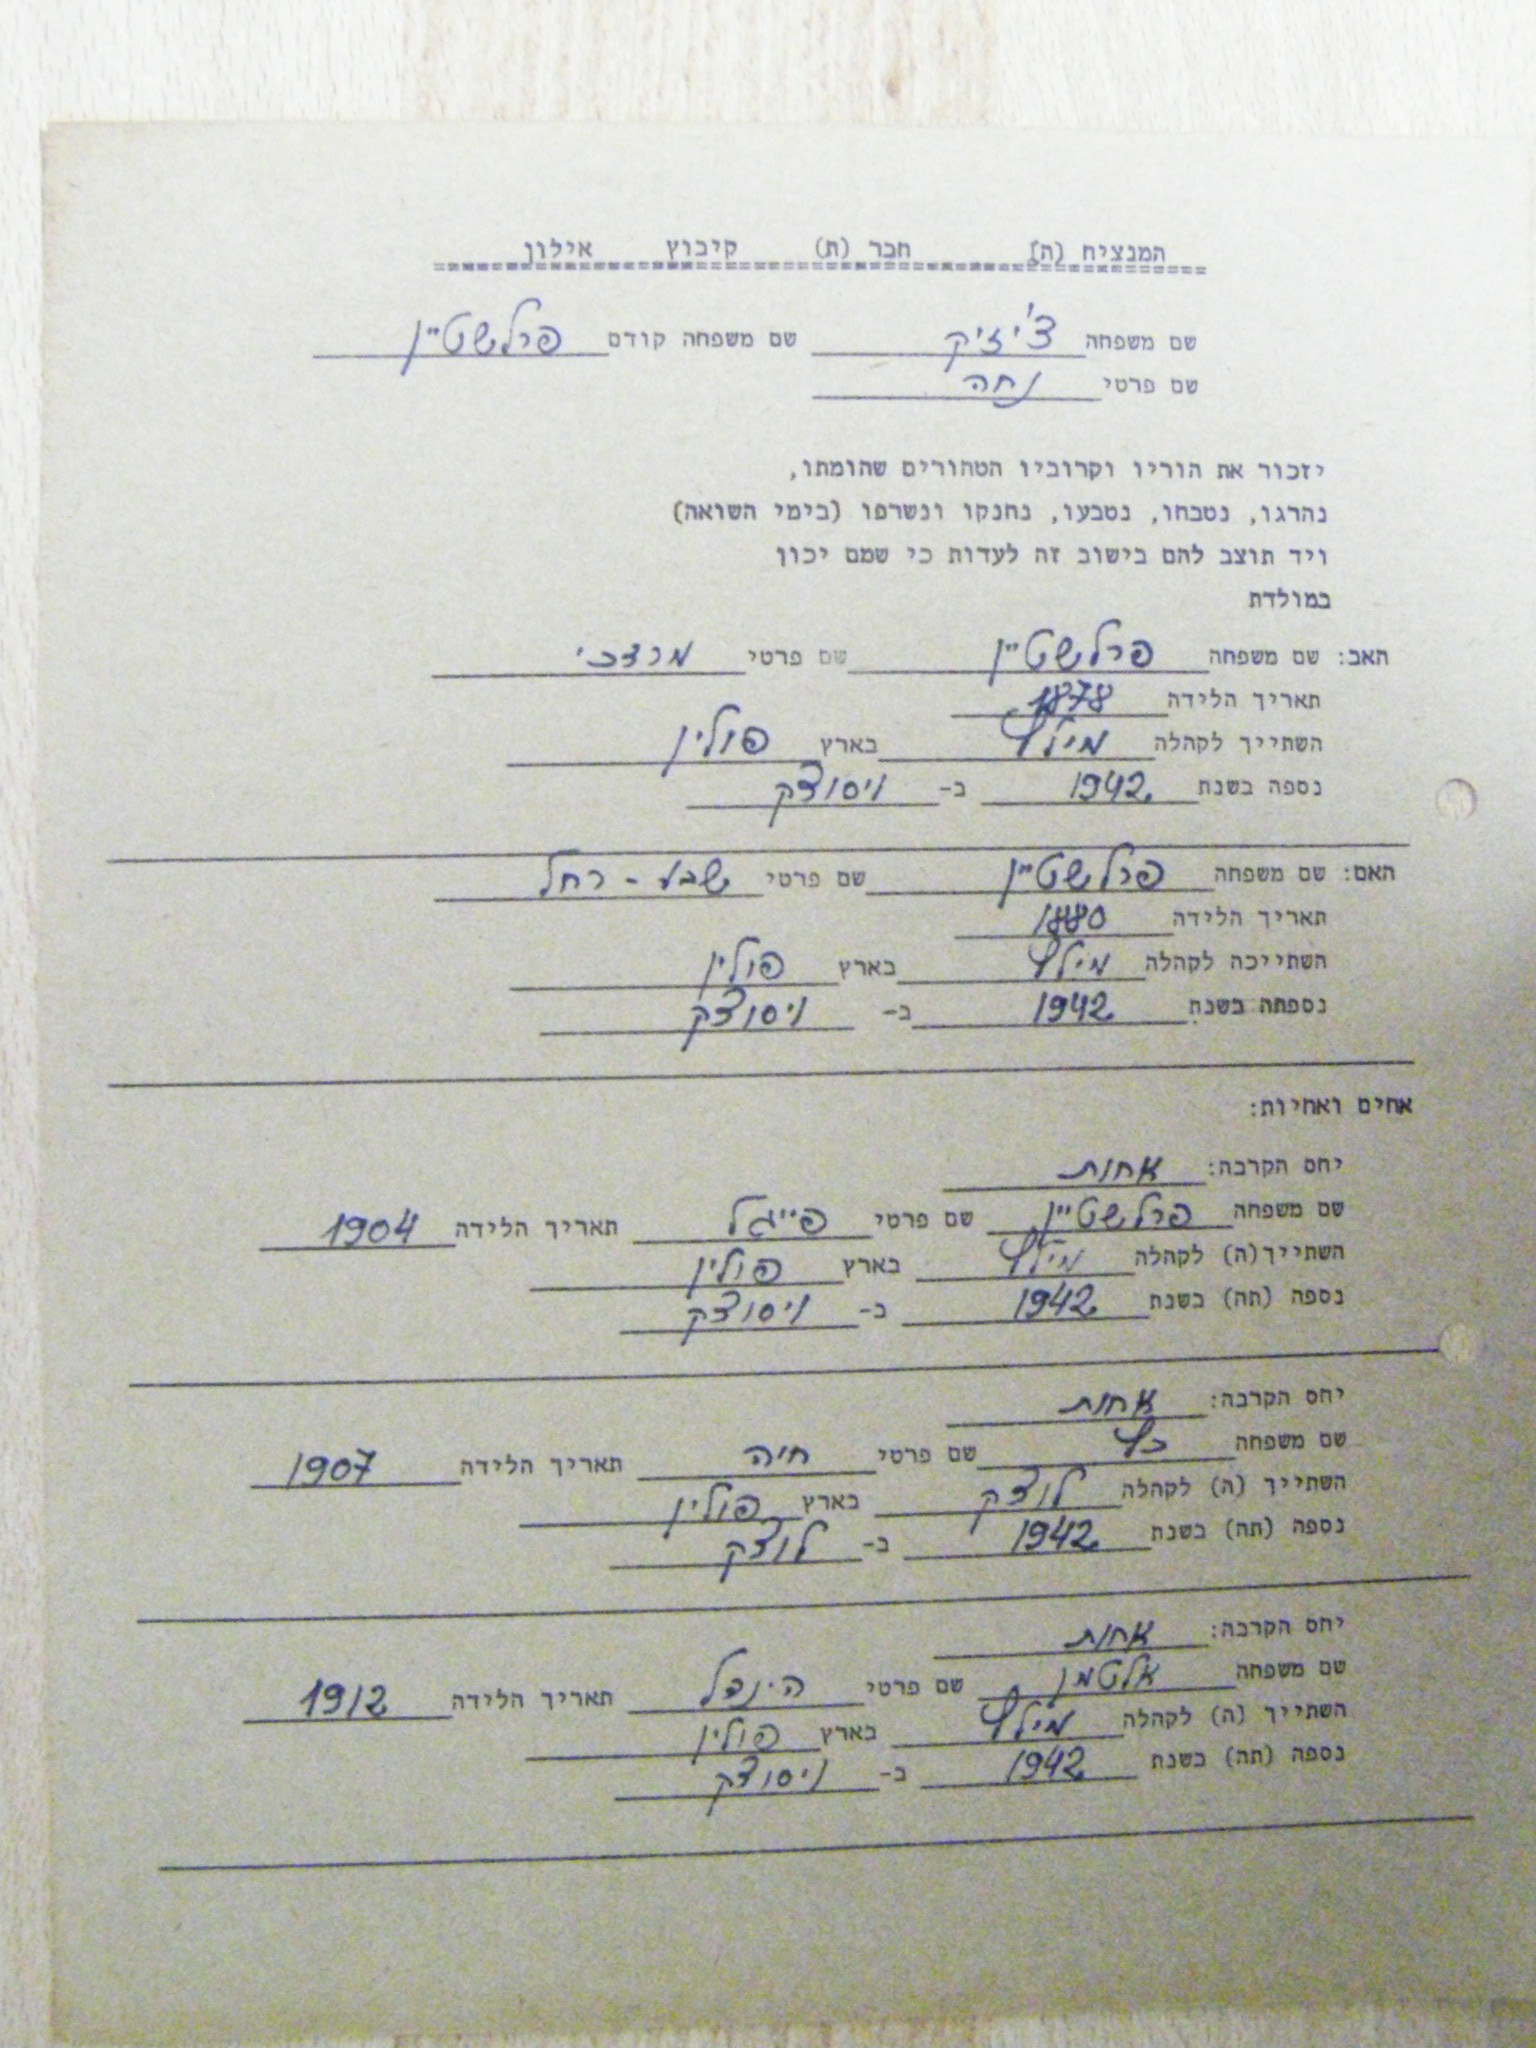 המנציח (ה) חבר (ת) קיבוץ אילון
שם משפחה צ'יזיק שם משפחה קודם פרלשטיין
שם פרטי נחה
יזכור את הוריו וקרוביו הטהורים שהומתו,
נהרגו, נטבחו, נטבעו, נחנקו ונשרפו (בימי השואה)
ויד תוצב להם בישוב זה לעדות כי שמם יכון
במולדת
האב: שם משפחה פרלשטיין שם פרטי מרדכי
תאריך הלידה 1878
השתייך לקהלה מילץ בארץ פולין
נספה בשנת 1942 ב- ויסוצק
האם: שם משפחה פרלשטיין שם פרטי שבע - רחל
תאריך הלידה 1880
השתייכה לקהלה מילץ בארץ פולין
נספתה בשנת 1942 ב- ויסוצק
אחים ואחיות:
יחס הקרבה: אחות
שם משפחה פרלשטיין שם פרטי פייגל תאריך הלידה 1904
השתייך(ה) לקהלה מילץ בארץ פולין
נספה (תה) בשנת 1942 ב- ויסוצק
יחס הקרבה: אחות
שם משפחה כץ שם פרטי חיה תאריך הלידה 1907
השתייך (ה) לקהלה לוצק בארץ פולין
נספה (תה) בשנת 1942 ב- לוצק
יחס הקרבה: אחות
שם משפחה אלטמן שם פרטי הינדל תאריך הלידה 1912
השתייך (ה) לקהלה מילץ בארץ פולין
נספה (תה) בשנת 1942 ב- ויסוצק